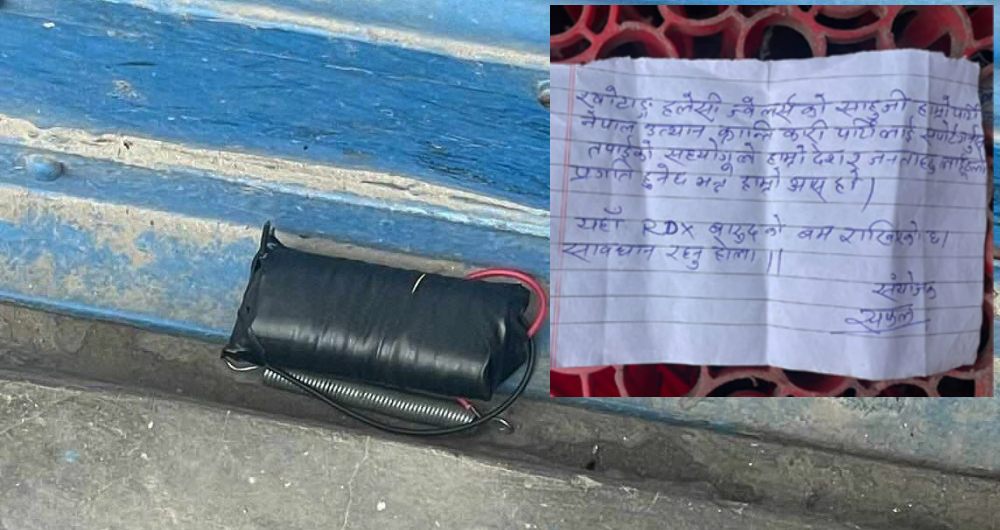 खोटाङ्ग हलेसी ज्वेलर्सको साहुजी हाम्रो पार्टी
नेपाल उत्थान क्रान्तिकारी पार्टीलाई
तपाईको सहयोगले हाम्रो देश र जनता
प्रगति हुनेछ भन्ने हाम्रो आस हो।
यहाँ RDX बारुदको बम राखिएको छ।
सावधान रहनु होला।।
संयोजक